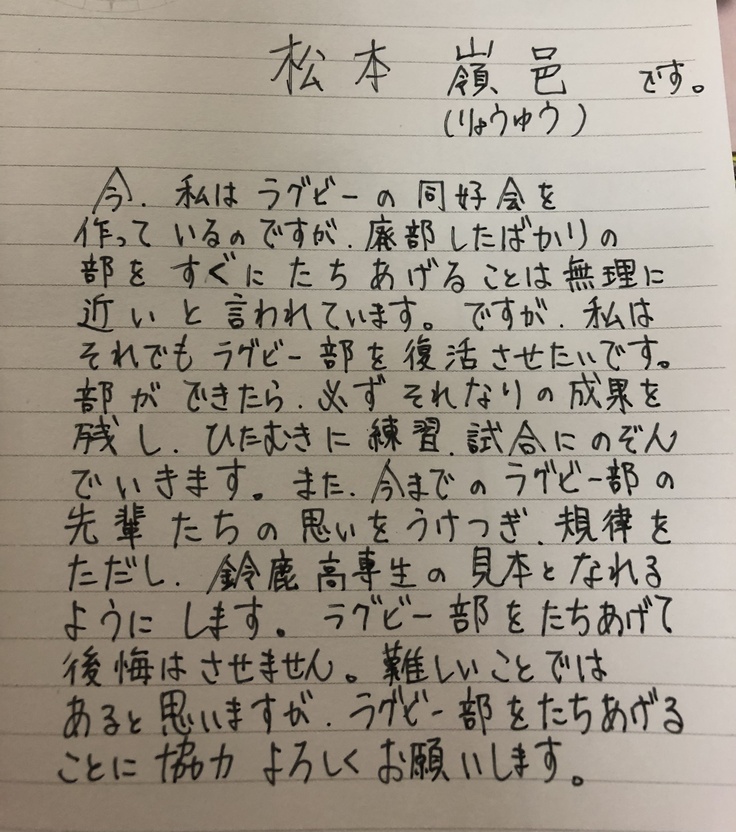 松本 嶺邑 です。
(りょうゆう)
今、私はラグビーの同好会を
作っているのですが、廃部したばかりの
部をすぐにたちあげることは無理に
近いと言われています。ですが、私は
それでもラグビー部を復活させたいです。
部ができたら、必ずそれなりの成果を
残し、ひたむきに練習、試合にのぞん
でいきます。また、今までのラグビー部の
先輩たちの思いをうけつぎ、規律を
ただし、鈴鹿高専生の見本となれる
ようにします。ラグビー部をたちあげて
後悔はさせません。難しいことでは
あると思いますが、ラグビー部をたちあげる
ことに協力よろしくお願いします。